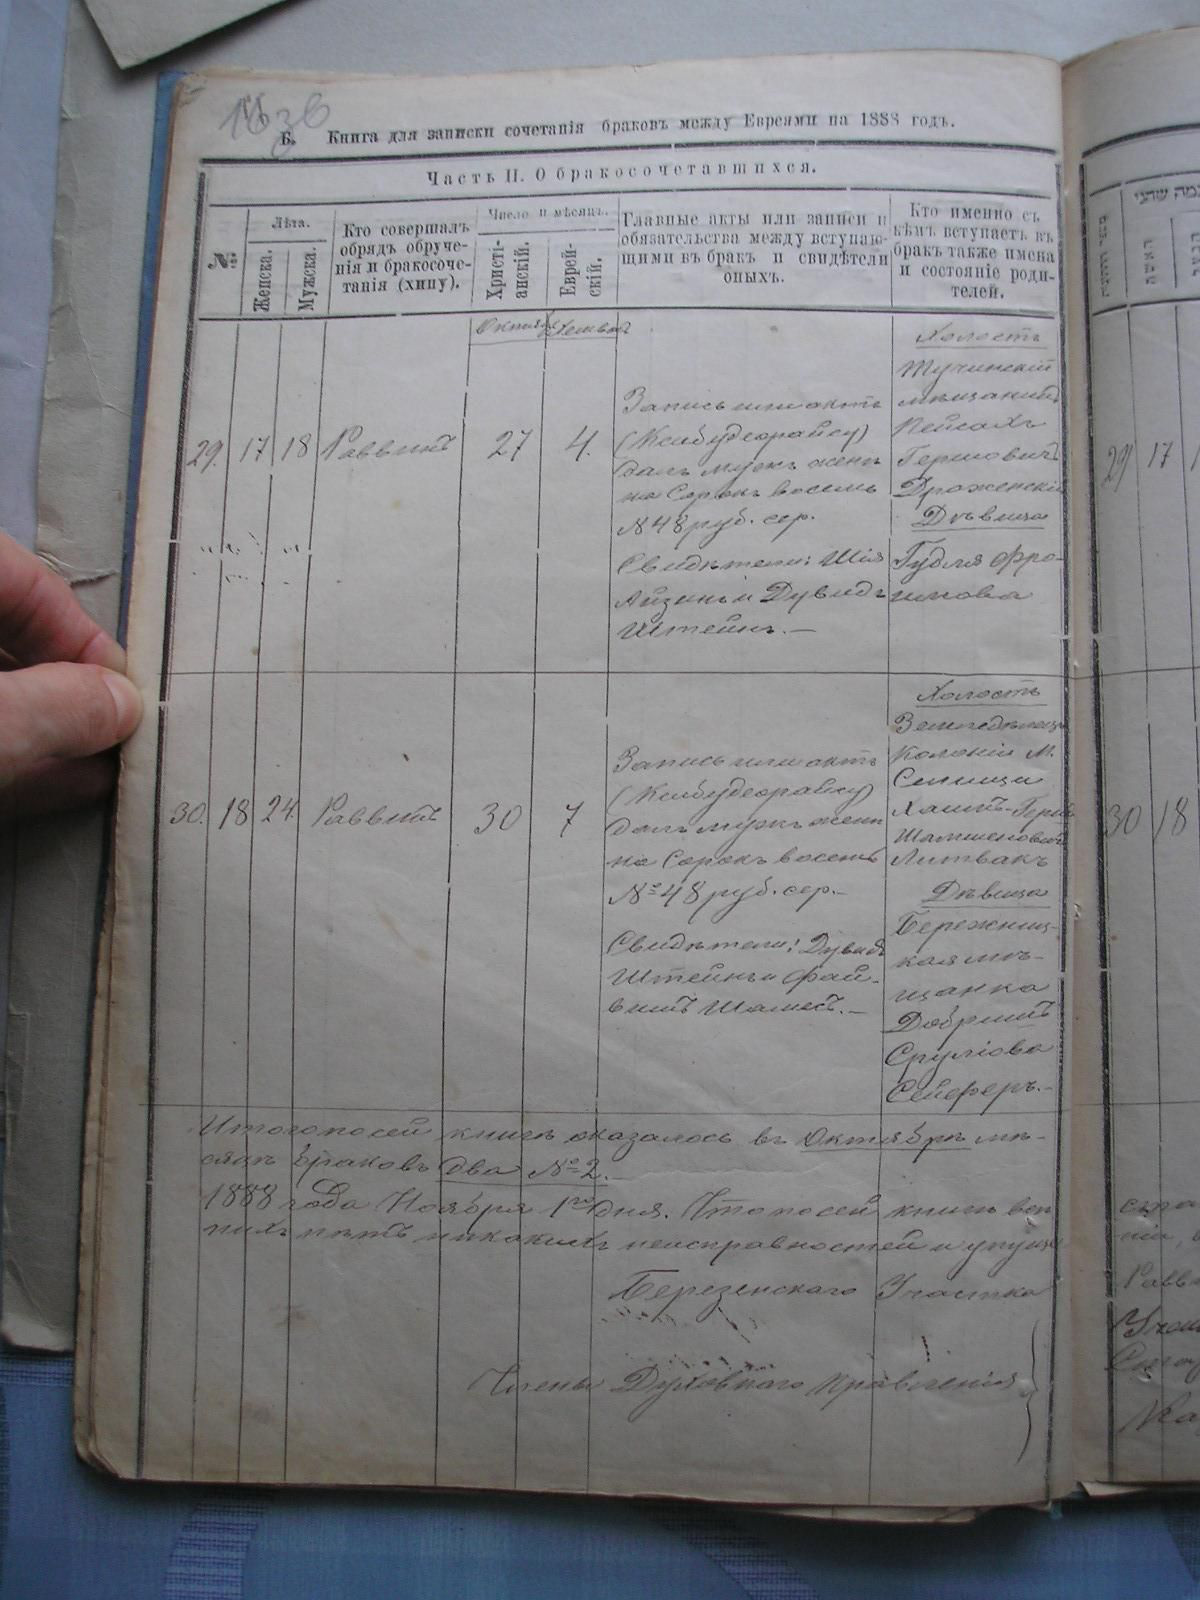 Б. Книга для записки сочетанія браковъ между Евреями на 1888 годъ.
Часть II. О бракосочетавшихся.
№
Лѣта.
Женска.
Мужска.
Кто совершалъ
обрядъ обруче-
нія и бракосоче-
танія (хипу).
Число и мѣсяцъ.
Христі-
анскій.
Еврей-
скій.
Главные акты или записи и
обязательства между вступаю-
щими въ бракъ и свидѣтели
оныхъ.
Кто именно съ
кѣмъ вступаетъ въ
бракъ также имена
и состояніе роди-
телей.
Октябрь
Хешвон
29.
17
18
Раввинъ
27
4.
Запись или актъ
(Ксибудеорайсу)
далъ мужъ женѣ
на Сорокъ восемь
№ 48 руб. сер.
Свидѣтели: Шія
Айзинъ и Дувидъ
Штейнъ.—
Холостъ
Тучинскій
мѣщанинъ
Пейсахъ
Гершовичъ
Дроженскій
Дѣвица
Гудля Фро-
имова
30.
18
24.
Раввинъ
30
7
Запись или актъ
(Ксибудеорайсу)
далъ мужъ женѣ
на Сорокъ восемь
№ 48 руб. сер.—
Свидѣтели: Дувидъ
Штейнъ и Фай-
вишъ Шамесъ.—
Холостъ
Земледѣлецъ
Колоніи М.
Селища
Хаимъ-Герш
Шамшеновичъ
Литвакъ
Дѣвица
Бережниц-
кая мѣ-
щанка
Добришъ
Сруліова
Сейферъ.—
Итого по сей книгѣ оказалось въ Октябрѣ мѣ-
сяцѣ браковъ два № 2.—
1888 года Ноября 1го дня. Что по сей книгѣ
нихъ нѣтъ никакихъ неисправностей и упуще
Березенскаго Участка
Члены Духовнаго Правленія
29
17
30
18